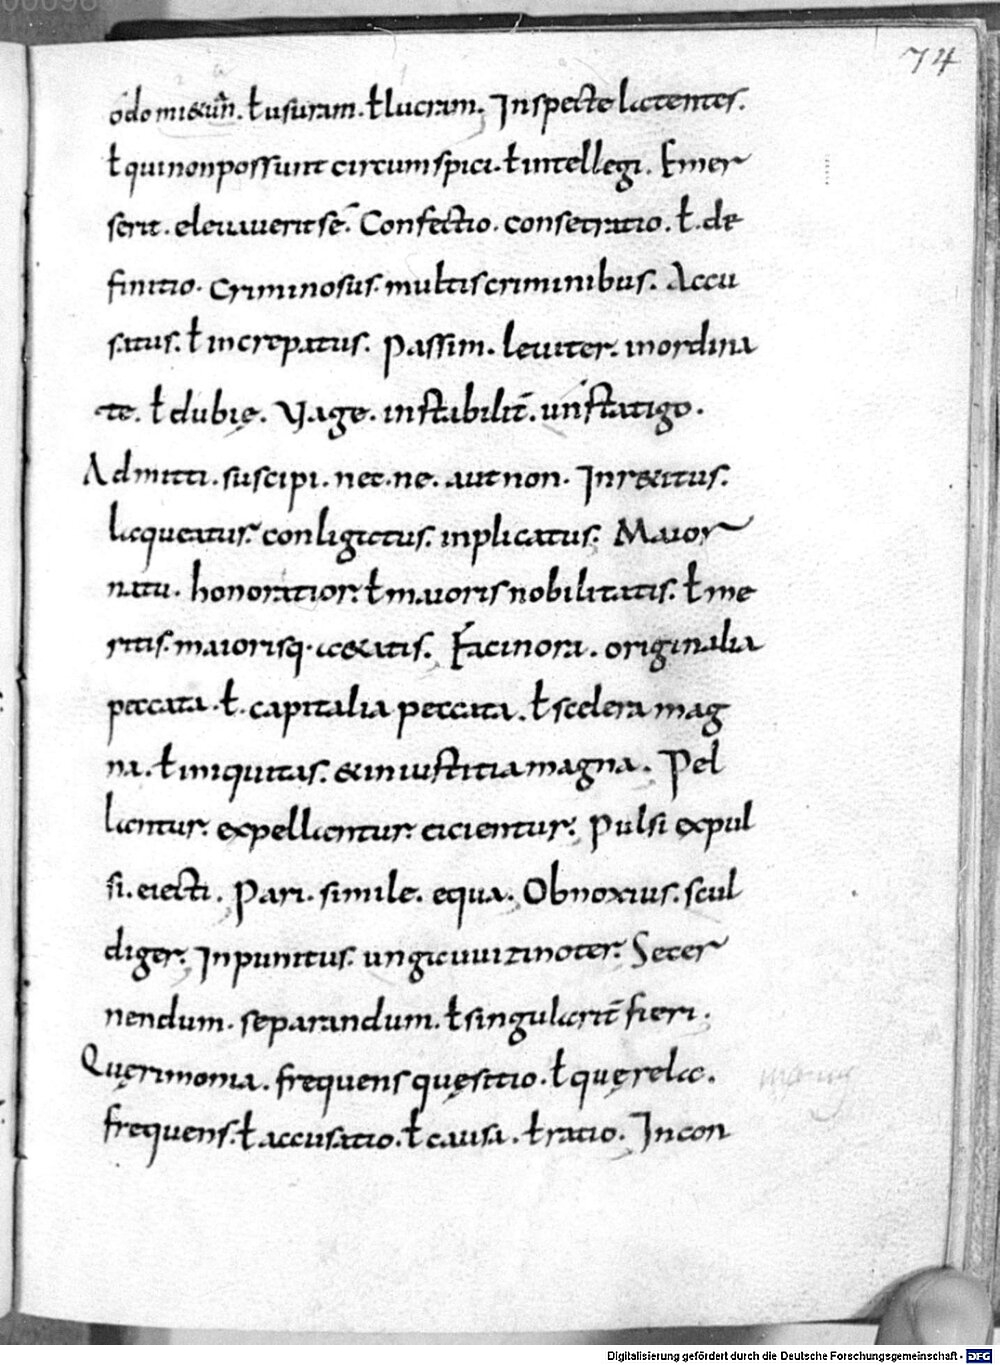 74
odomi&un̄. ł usuram. ł lucram. Inspecte latentes.
ł qui non possunt circumspici. ł intellegi. Emer
serit. eleuauerit se. Confectio. consecratio. ł. de
finitio. Criminosus. multis criminibus. Accu
satus. ł increpatus. Passim. leuiter. inordina
te. ł dubię. Vage. instabilit̄. unstatigo.
Admitti. suscipi. nec. ne. aut non. Inr&itus.
laqueatus. conligatus. inplicatus. Maior
natu. honoratior. ł maioris nobilitatis. ł me
ritis. maiorisq. ac&atis. Facinora. originalia
peccata. ł. capitalia peccata. ł scelera mag
na. ł iniquitas. & iniustitia magna. Pel
lantur. expellantur. eicientur. Pulsi expul
si. eiecti. Pari. simile. equa. Obnoxius. scul
diger. Inpunitus. ungauuizinoter. Secer
nendum. separandum. ł singularit̄ fieri.
Quęrimonia. frequens quęstio. ł quęrela.
frequens. ł accusatio. ł causa. ł ratio. Incon
Digitalisierung gefördert durch die Deutsche Forschungsgemeinschaft - DFG